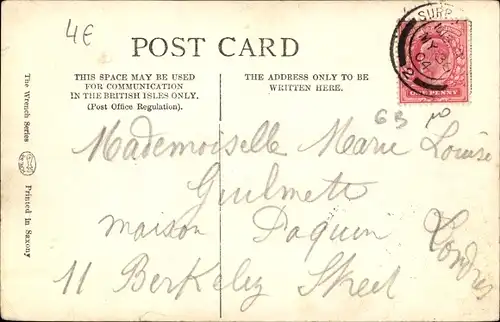 4€
POST CARD
THIS SPACE MAY BE USED
FOR COMMUNICATION
IN THE BRITISH ISLES ONLY.
(Post Office Regulation).
THE ADDRESS ONLY TO BE
WRITTEN HERE.
SURB
MY 3
04
2
ONE PENNY
63
Mademoiselle Marie Louise
Guilmett
maison Paquin
Londres
11 Berkeley Street
The Wrench Series
Printed in Saxony